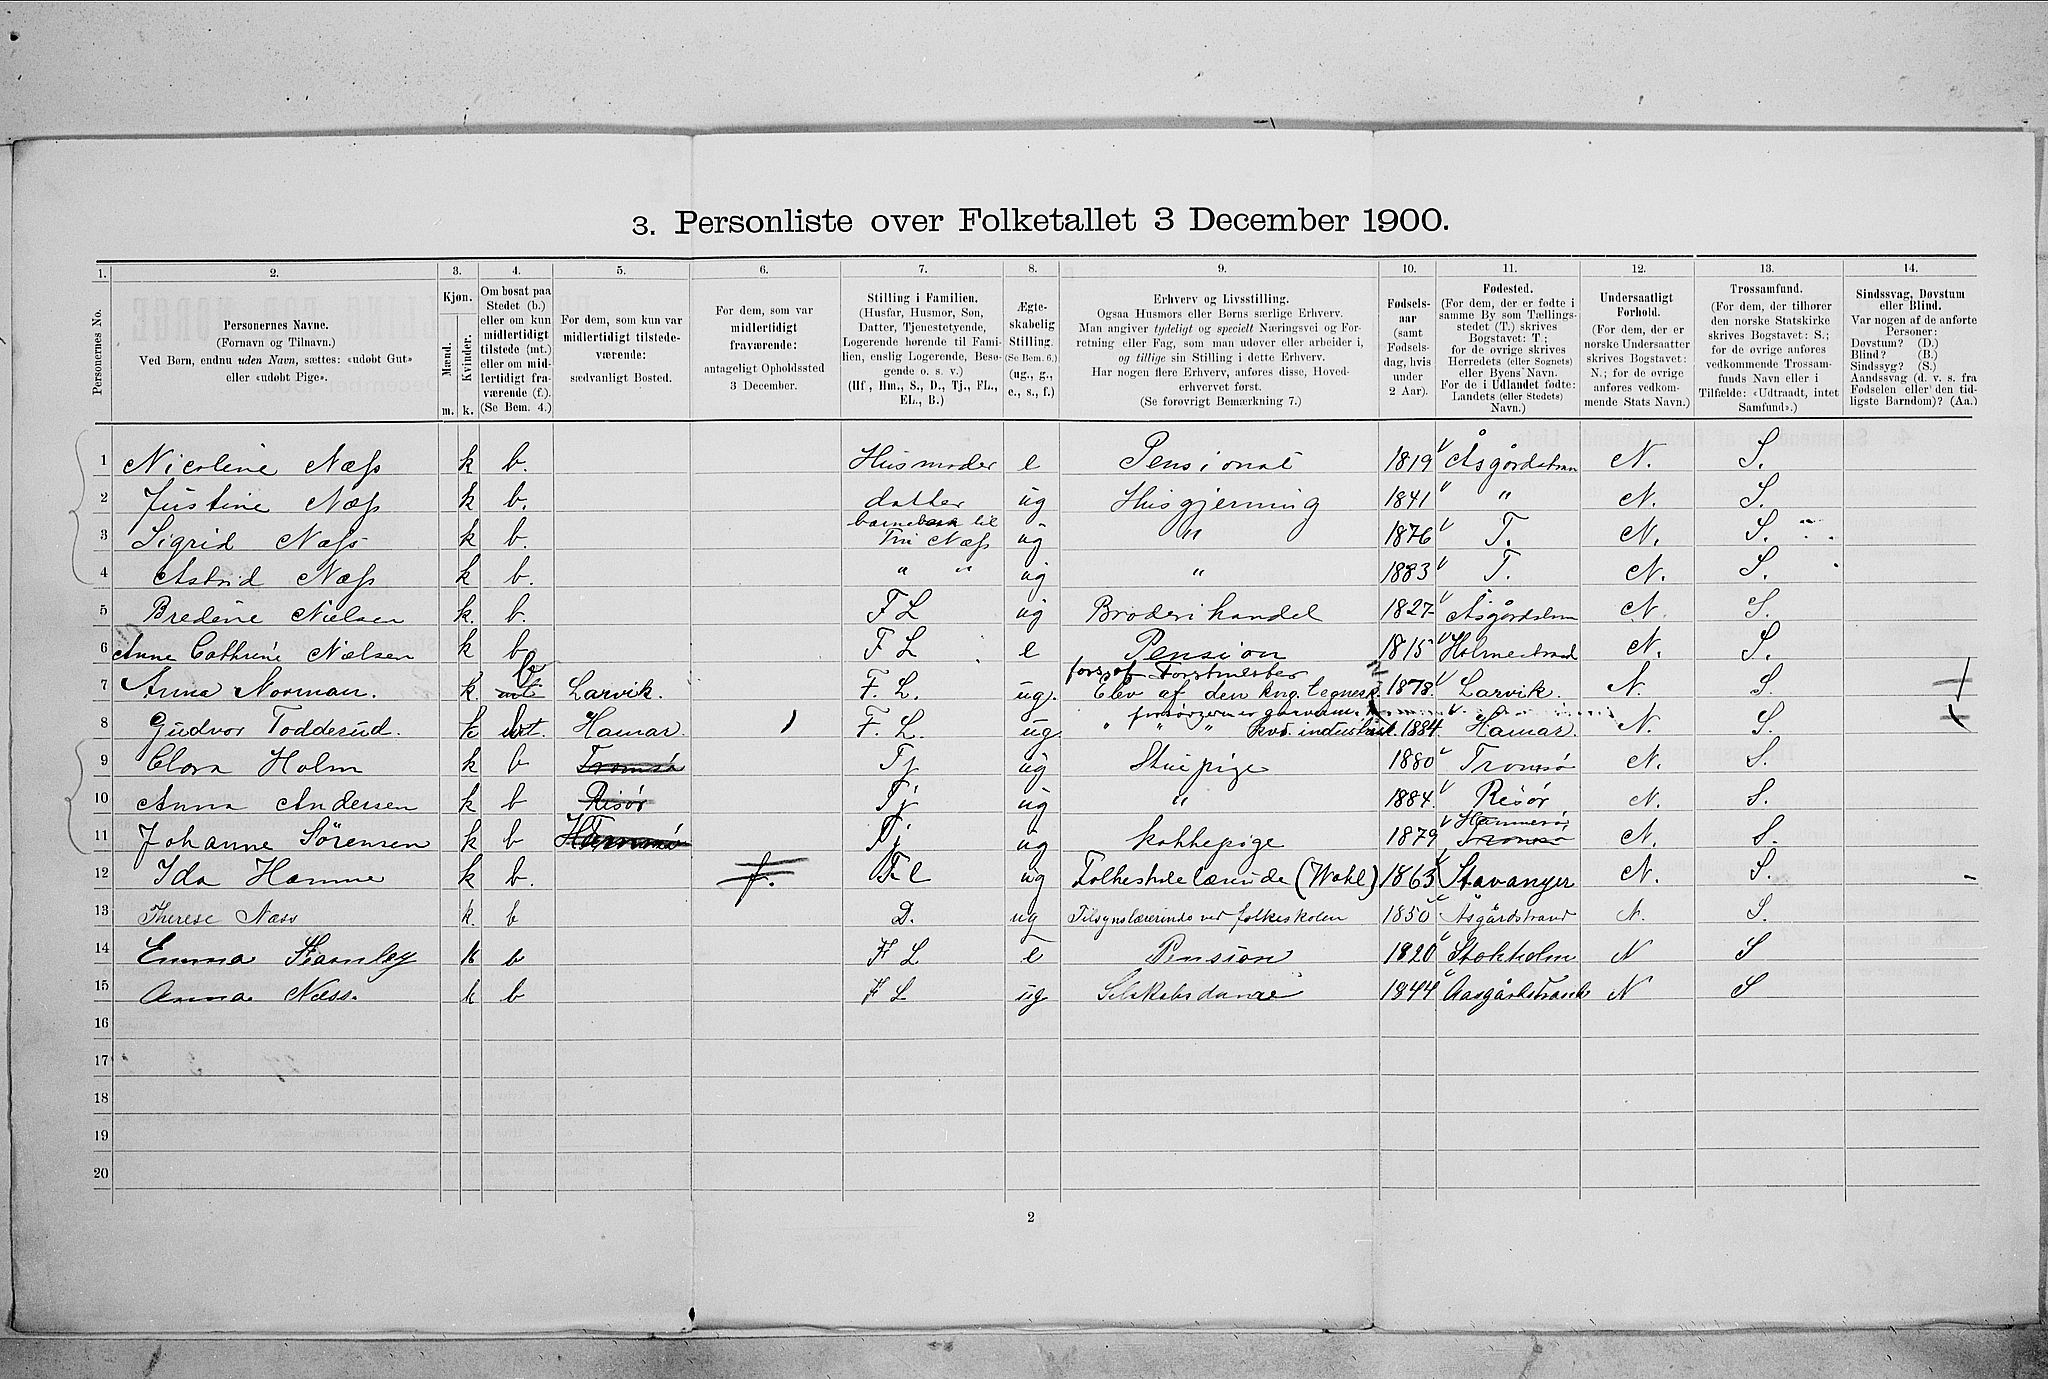 3. Personliste over Folketallet 3 December 1900.
1. 2. 3. 4. 5. 6. 7. 8. 9. 10. 11. 12. 13. 14.
Personernes No.
Personernes Navne.
(Fornavn og Tilnavn.)
Ved Børn, endnu uden Navn, sættes: «udøbt Gut»
eller «udøbt Pige».
Kjøn.
Mænd. Kvinder.
m. k.
Om bosat paa
Stedet (b.)
eller om kun
midlertidigt
tilstede (mt.)
eller om mid-
lertidigt fra-
værende (f.).
(Se Bem. 4.)
For dem, som kun var
midlertidigt tilstede-
værende:
sædvanligt Bosted.
For dem, som var
midlertidigt
fraværende:
antageligt Opholdssted
3 December.
Stilling i Familien.
(Husfar, Husmor, Søn,
Datter, Tjenestetyende,
Logerende hørende til Fami-
lien, enslig Logerende, Besø-
gende o. s. v.)
(Hf, Hm., S., D., Tj., FL.,
EL., B.)
Ægte-
skabelig
Stilling.
(Se Bem. 6.)
(ug., g.,
e., s., f.)
Erhverv og Livsstilling.
Ogsaa Husmors eller Børns særlige Erhverv.
Man angiver tydeligt og specielt Næringsvei og For-
retning eller Fag, som man udøver eller arbeider i,
og tillige sin Stilling i dette Erhverv.
Har nogen flere Erhverv, anføres disse, Hoved-
erhvervet først.
(Se forøvrigt Bemærkning 7.)
Fødsels-
aar
(samt
Fødsels-
dag, hvis
under
2 Aar).
Fødested.
(For dem, der er fødte i
samme By som Tællings-
stedet (T.) skrives
Bogstavet: T.;
for de øvrige skrives
Herredets (eller Sognets)
eller Byens Navn.
For de i Udlandet fødte:
Landets (eller Stedets)
Navn.)
Undersaatligt
Forhold.
(For dem, der er
norske Undersaatter
skrives Bogstavet:
N.; for de øvrige
anføres vedkom-
mende Stats Navn.)
Trossamfund.
(For dem, der tilhører
den norske Statskirke
skrives Bogstavet: S.;
for de øvrige anføres
vedkommende Trossam-
funds Navn eller i
Tilfælde: «Udtraadt, intet
Samfund».)
Sindssvag, Døvstum
eller Blind.
Var nogen af de anførte
Personer:
Døvstum? (D.)
Blind? (B.)
Sindssyg? (S.)
Aandssvag (d. v. s. fra
Fødselen eller den tid-
ligste Barndom)? (Aa.)
1 Nicoline Næss k b. Husmoder e Pensionat 1819 Åsgårdstran N. S.
2 Justine Næss k b. datter ug Husgjerning 1841 " N. S.
3 Sigrid Næss k b. barnebarn til Fru Næss ug " 1876 T. N. S.
4 Astrid Næss k b. " " ug " 1883 T. N. S.
5 Bredine Nielsen k. b. F L ug Broderihandel 1827 Åsgårdstran N. S.
6 Anne Cathrine Nielsen k b. F L e Pension 1815 Holmestrand N. S.
fors. af Forstmester
7 Anna Norman. k. mt b Larvik. F. L. ug. Elev af den kng. tegnesk. 1878. Larvik. N. S.
8 Gudvor Todderud. k mt. Hamar F. L. ug " " " kvd. industrisk. 1884. Hamar. N. S.
9 Clara Holm k b Tromsø Tj ug Stuepige 1880 Tromsø N. S.
10 Anna Andersen k b Risør Tj ug " 1884. Risør N. S.
11 Johanne Sörensen k b Tj ug kokkepige 1879 Hammerø Tromsø N. S.
12 Ida Hamme k b. f. F.l ug Folkeskolelærinde (Wahl) 1863 Stavanger N. S.
13 Therese Næss k. b D. ug Tilsynslærerinde ved folkeskolen 1850 Åsgårdstrand N. S.
14 Emma Stamley k b F L e Pension 1820 Stokholm N S
15 Anna Næss. k b F L ug Selskabsdame 1844 Aasgårdstrand N S
16
17
18
19
20
2